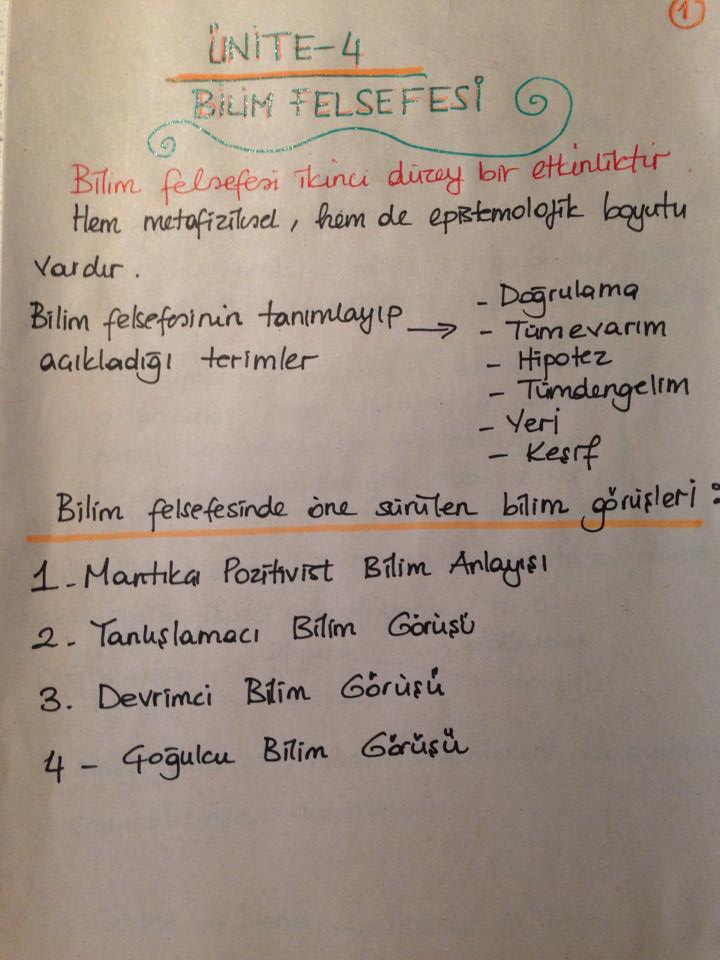 1
ÜNİTE-4
BİLİM FELSEFESİ
Bilim felsefesi ikinci düzey bir etkinliktir.
Hem metafiziksel, hem de epistemolojik boyutu
vardır.
Bilim felsefesinin tanımlayıp →
açıkladığı terimler
- Doğrulama
- Tümevarım
- Hipotez
- Tümdengelim
- Yeri
- Keşif
Bilim felsefesinde öne sürülen bilim görüşleri:
1- Mantıkçı Pozitivist Bilim Anlayışı
2- Yanlışlamacı Bilim Görüşü
3. Devrimci Bilim Görüşü
4- Çoğulcu Bilim Görüşü